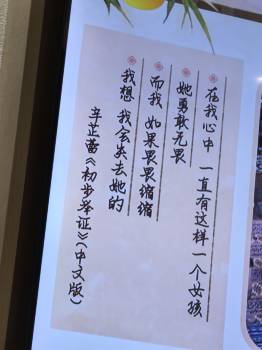 在我心中 一直有这样一个女孩
她勇敢无畏
而我 如果畏畏缩缩
我想 我会失去她的
辛芷蕾《初步举证》(中文版)